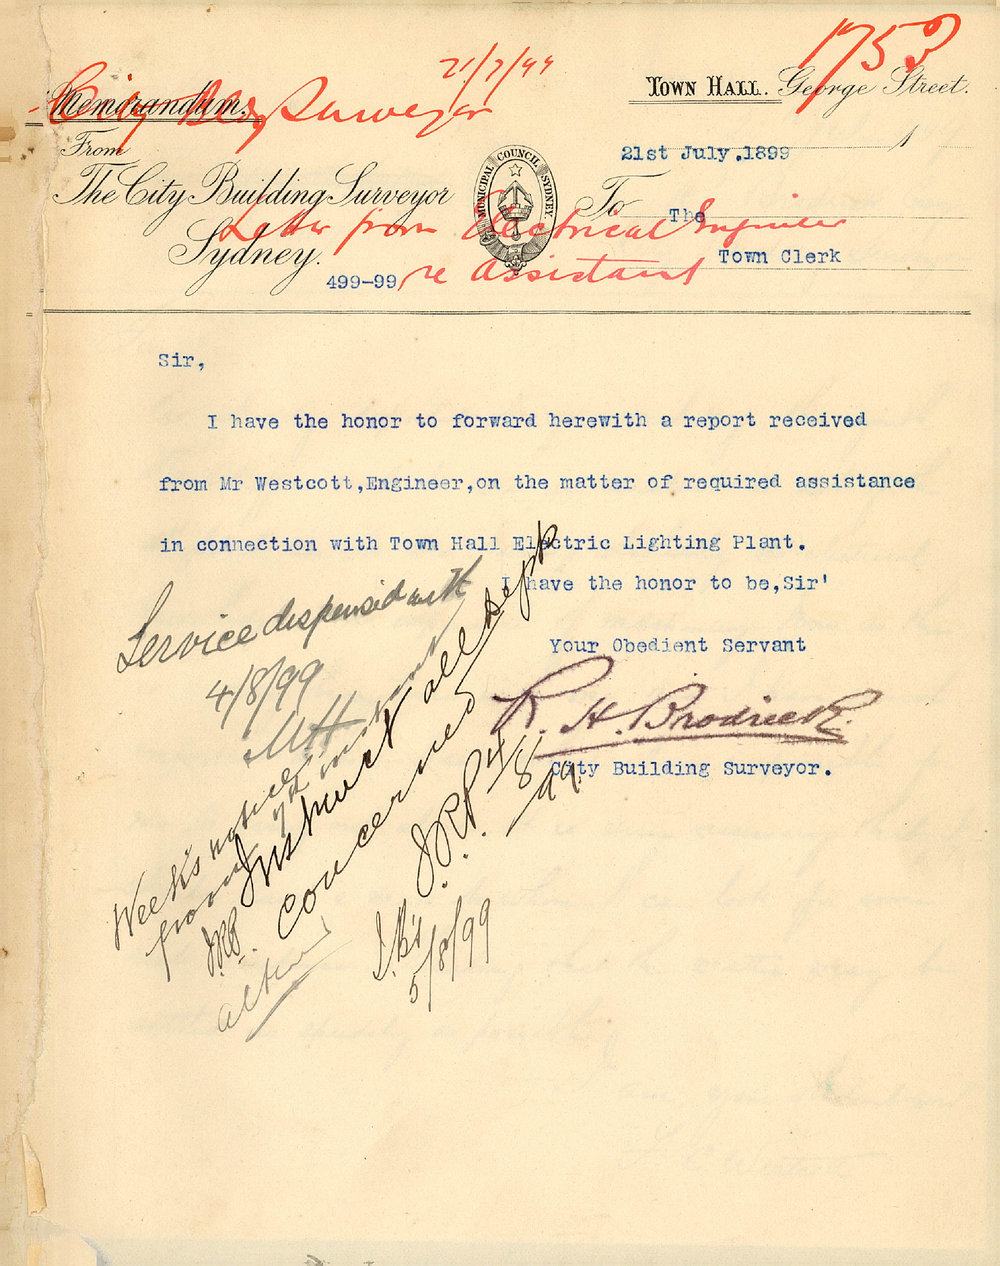 1753
21/7/99
City Bldg Surveyor
Memorandum.
TOWN HALL. George Street.
From
21st July.1899
1
The City Building Surveyor
MUNICIPAL COUNCIL SYDNEY
To The
Letter from Electrical Engineer
Sydney.
Town Clerk
499-99
re Assistant
Sir,
I have the honor to forward herewith a report received
from Mr Westcott,Engineer,on the matter of required assistance
in connection with Town Hall Electric Lighting Plant.
I have the honor to be,Sir'
Your Obedient Servant
R. H. Brodrick.
City Building Surveyor.
Service dispensed with
4/8/99
Week's notice
from 7th instant
Instruct all depts
concerned
J.R.P. 4/8/99
J.R.P.
5/8/99